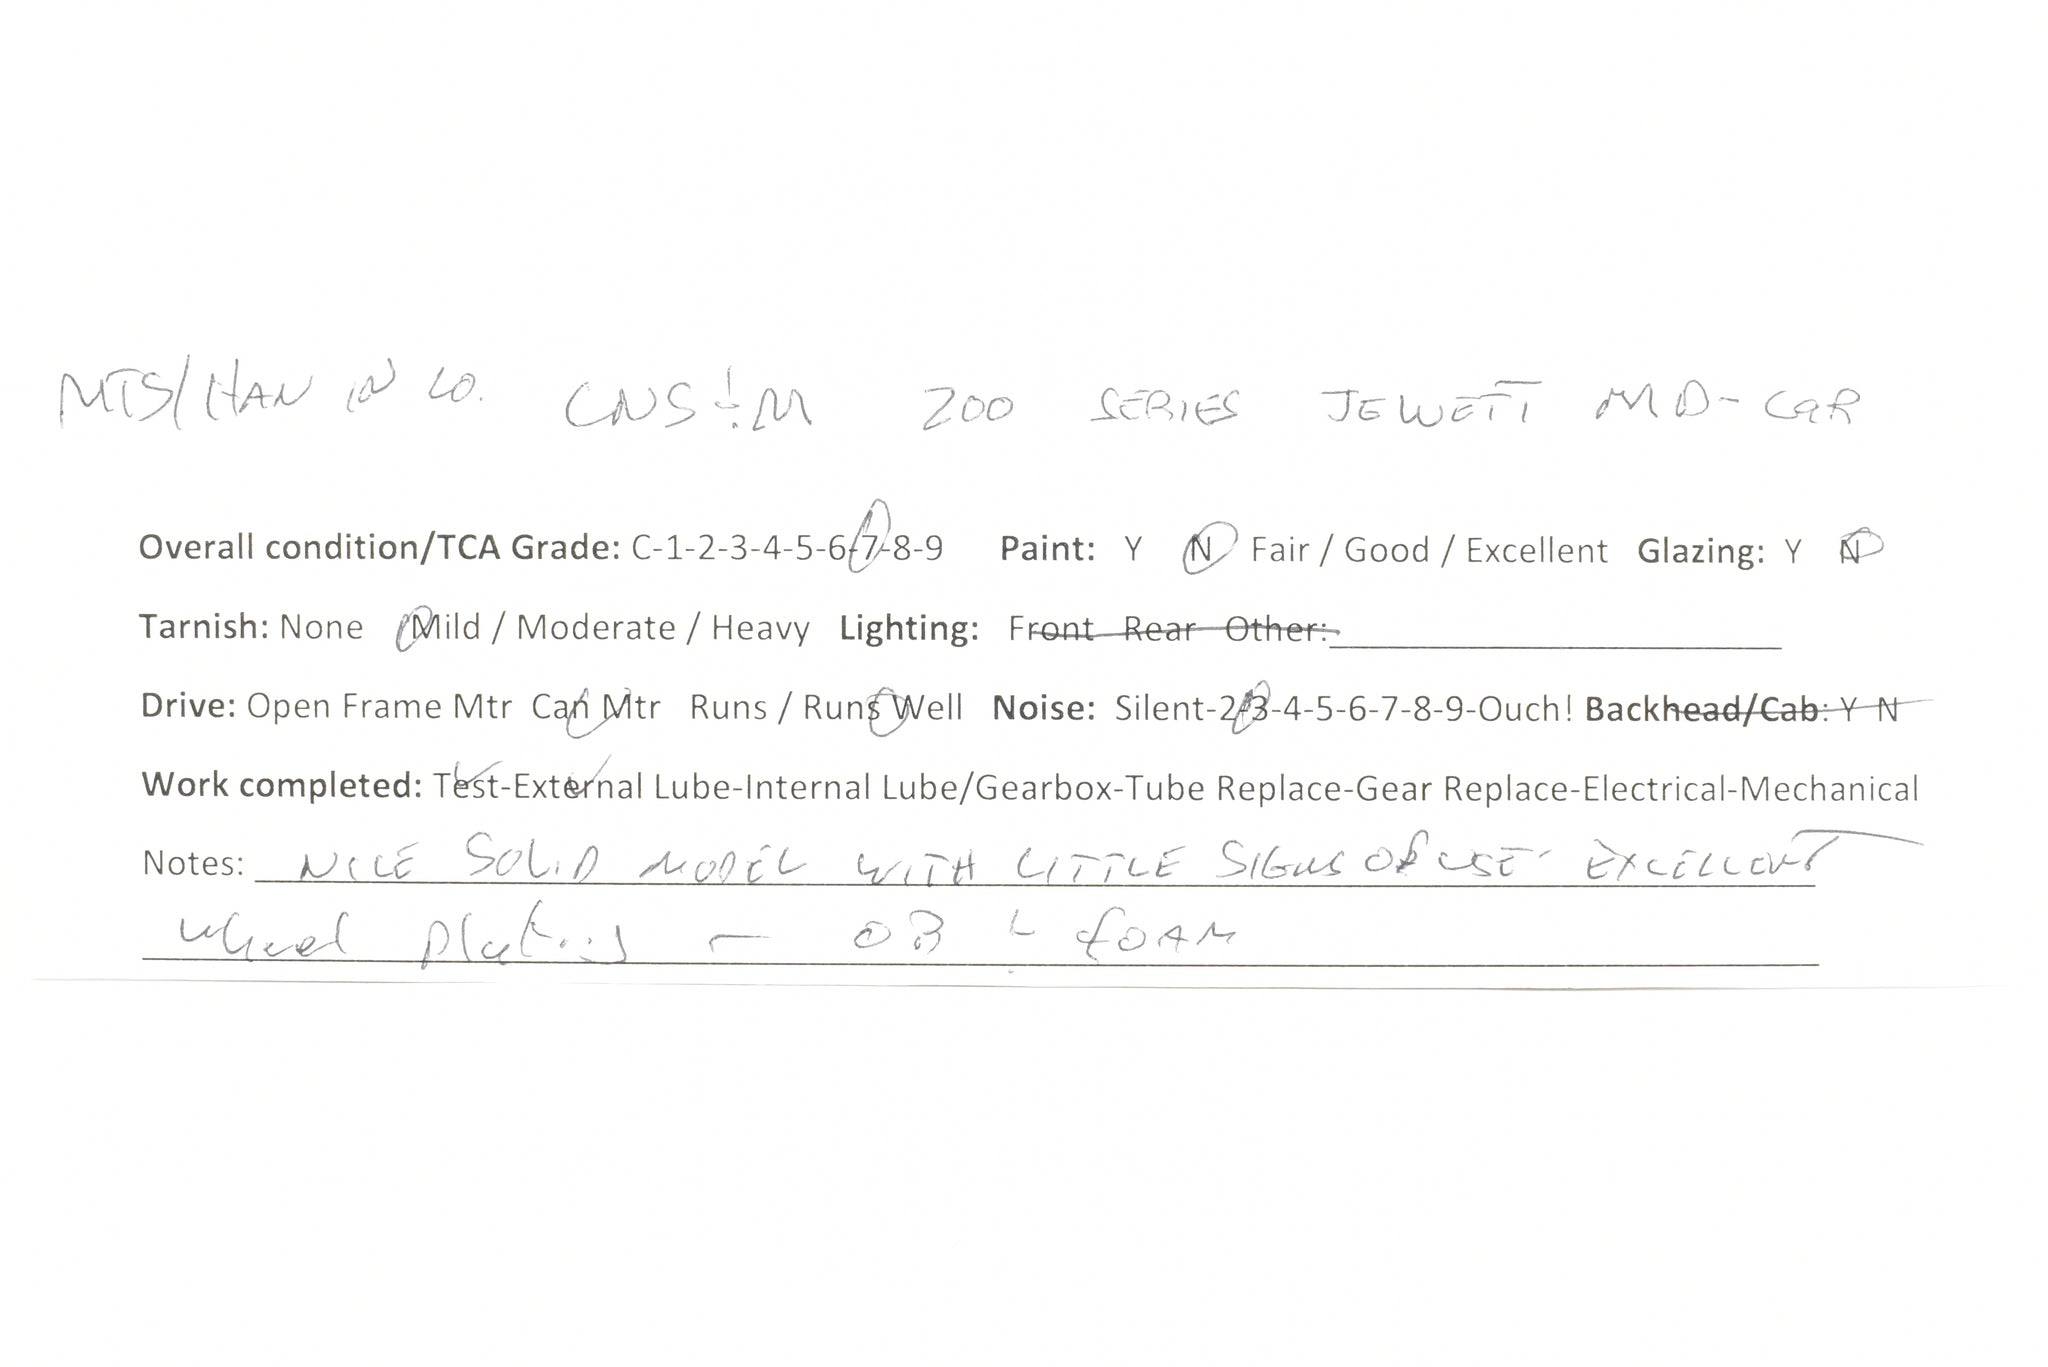 MTS/HAN IN CO. CNS÷M 200 SERIES JEWETT MD-CAR
Overall condition/TCA Grade: C-1-2-3-4-5-6-7-8-9 Paint: Y N Fair / Good / Excellent Glazing: Y N
Tarnish: None Mild / Moderate / Heavy Lighting: Front Rear Other:
Drive: Open Frame Mtr Can Mtr Runs / Runs Well Noise: Silent-2-3-4-5-6-7-8-9-Ouch! Backhead/Cab: Y N
Work completed: Test-External Lube-Internal Lube/Gearbox-Tube Replace-Gear Replace-Electrical-Mechanical
Notes: NICE SOLID MODEL WITH LITTLE SIGNS OF USE- EXCELLENT
wheel plating - OB + FOAM